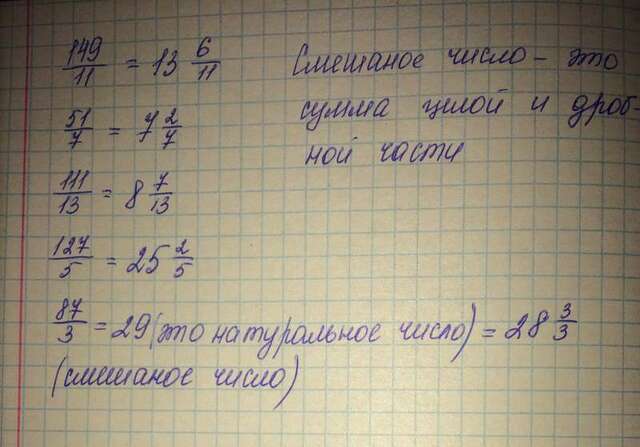 149/11 = 13 6/11
51/7 = 7 2/7
111/13 = 8 7/13
127/5 = 25 2/5
87/3 = 29 (это натуральное число) = 28 3/3
(смешаное число)
Смешаное число – это
сумма целой и дроб
ной части